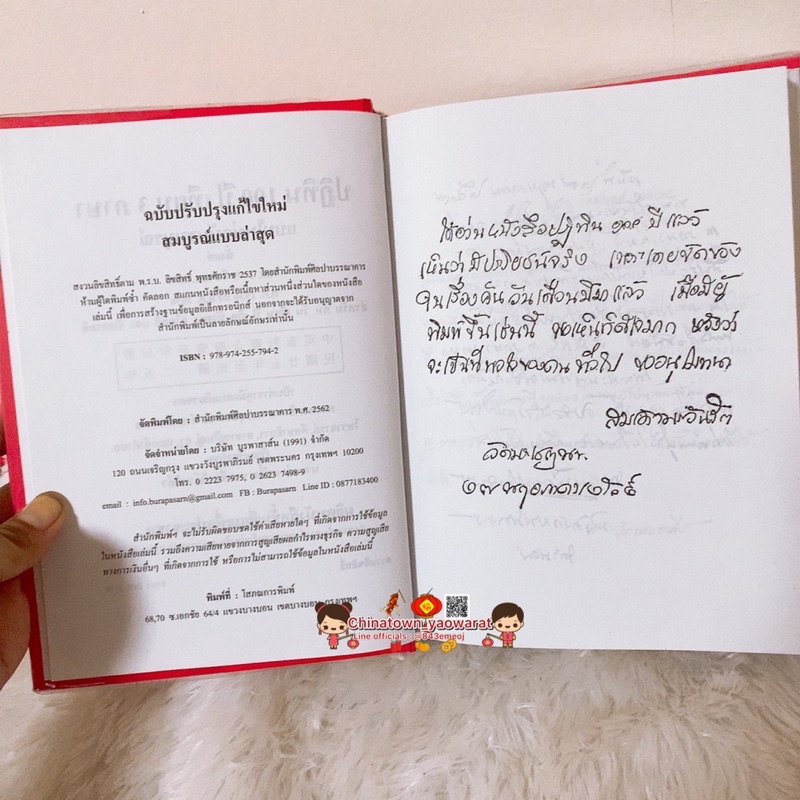 ฉบับปรับปรุงแก้ไขใหม่
สมบูรณ์แบบล่าสุด
สงวนลิขสิทธิ์ตาม พ.ร.บ. ลิขสิทธิ์ พุทธศักราช 2537 โดยสำนักพิมพ์ศิลปาบรรณาคาร
ห้ามผู้ใดพิมพ์ซ้ำ คัดลอก สแกนหนังสือหรือเนื้อหาส่วนหนึ่งส่วนใดของหนังสือ
เล่มนี้ เพื่อการสร้างฐานข้อมูลอิเล็กทรอนิกส์ นอกจากจะได้รับอนุญาตจาก
สำนักพิมพ์เป็นลายลักษณ์อักษรเท่านั้น
ISBN : 978-974-255-794-2
จัดพิมพ์โดย : สำนักพิมพ์ศิลปาบรรณาคาร พ.ศ. 2562
จัดจำหน่ายโดย : บริษัท บูรพาสาส์น (1991) จำกัด
120 ถนนเจริญกรุง แขวงวังบูรพาภิรมย์ เขตพระนคร กรุงเทพฯ 10200
โทร. 0 2223 7975, 0 2623 7498-9
email : info.burapasarn@gmail.com FB : Burapasarn Line ID : 0877183400
สำนักพิมพ์ฯ จะไม่รับผิดชอบชดใช้ค่าเสียหายใดๆ ที่เกิดจากการใช้ข้อมูล
ในหนังสือเล่มนี้ รวมถึงความเสียหายจากการสูญเสียผลกำไรทางธุรกิจ ความสูญเสีย
ทางการเงินอื่นๆ ที่เกิดจากการใช้ หรือการไม่สามารถใช้ข้อมูลในหนังสือเล่มนี้
พิมพ์ที่ : โสภณการพิมพ์
68,70 ซ.เอกชัย 64/4 แขวงบางบอน เขตบางบอน กรุงเทพฯ
ได้อ่านหนังสือปฏิทิน ๑๐๐ ปี แล้ว
เห็นว่ามีประโยชน์จริง ของ
คนเรื่องคืนวันเดือนปีมาแล้ว เมื่อมีผู้
พิมพ์ขึ้นเช่นนี้ ขอเห็นเกิดใจมาก หวังว่า
จะเป็นที่พอใจของคนทั่วไป ขออนุโมทนา
Chinatown_yaowarat
Line officials : @843emeoj